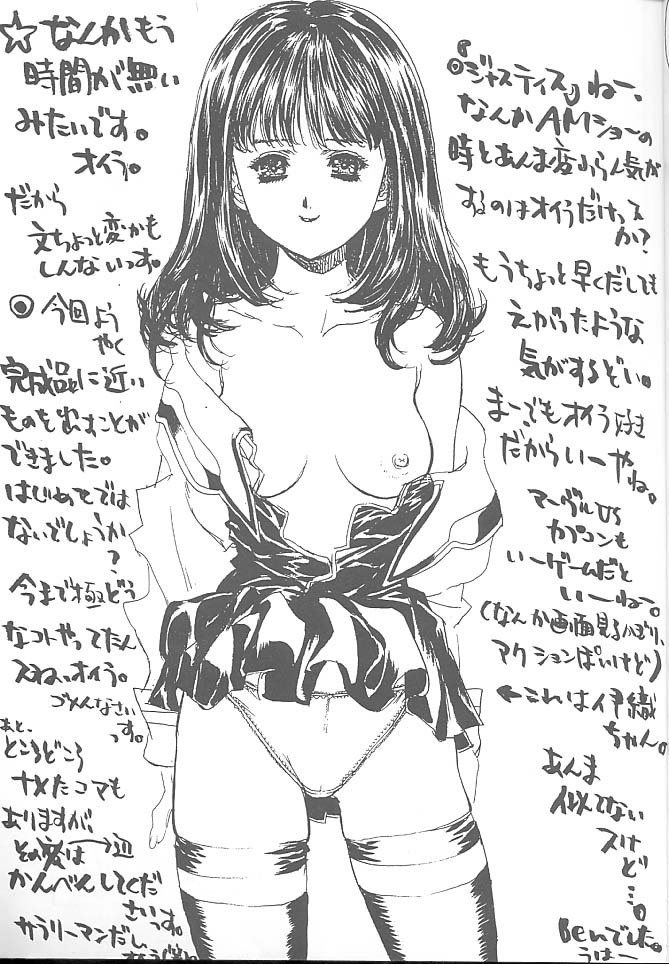 ☆なんかもう
時間が無い
みたいです。
オイラ。
だから
文ちょっと変かも
しんないっす。
◎今回よう
やく
完成品に近い
ものを出すことが
できました。
はじめてでは
ないでしょうか
?
今まで極どう
なコトやってたん
スね、オイラ。
ゴメんなさい
っす。
あと、
ところどころ
ナメたコマも
ありますが、
その変は
かんべんしてくだ
さいっす。
サラリーマンだし
◎『ジャスティス』ねー、
なんかAMショーの
時とあんま変ふら人気が
するのはオイラだけっスか?
もうちょっと早くだしても
えがったような
気がするぞい。
まーでもオイラ好き
だからいーやね。
マーヴルVS
カプコンも
いーゲームだと
いーねー。
(なんか画面見るかぎり、
アクションぽいけど)
←これは伊織
ちゃん。
あんま
似てない
スけ
ど…。
Beんでした。
うはー